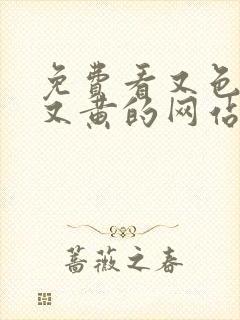 免費看又色
又黄的网佔
蔷薇之春